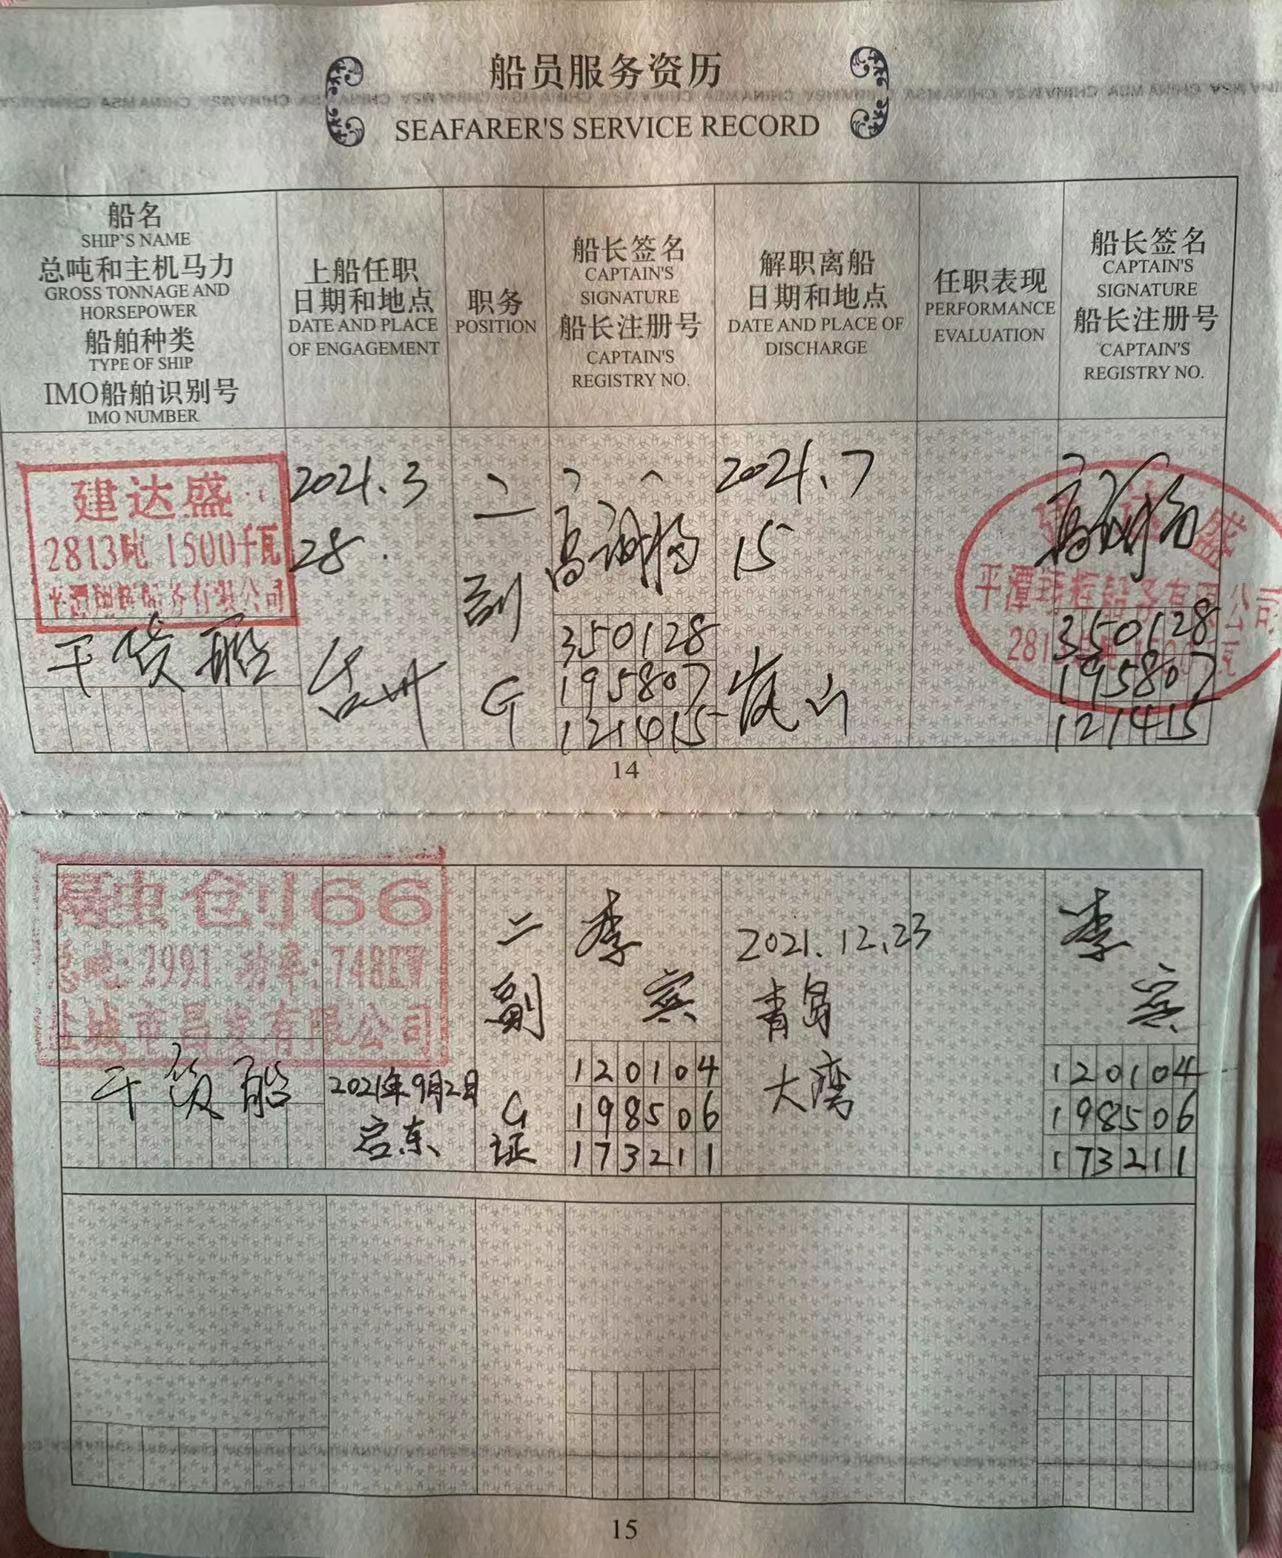 船员服务资历
SEAFARER'S SERVICE RECORD
船名
SHIP'S NAME
总吨和主机马力
GROSS TONNAGE AND
HORSEPOWER
船舶种类
TYPE OF SHIP
IMO船舶识别号
IMO NUMBER
上船任职
日期和地点
DATE AND PLACE
OF ENGAGEMENT
职务
POSITION
船长签名
CAPTAIN'S
SIGNATURE
船长注册号
CAPTAIN'S
REGISTRY NO.
解职离船
日期和地点
DATE AND PLACE OF
DISCHARGE
任职表现
PERFORMANCE
EVALUATION
船长签名
CAPTAIN'S
SIGNATURE
船长注册号
CAPTAIN'S
REGISTRY NO.
建达盛
2813吨 1500千瓦
平潭 船务有限公司
干货船
2021.3
28.
台州
二
副
G
350128
195807
121415
2021.7
15
建达盛
平潭 船务有限公司
350128
195807
121415
14
融虫创66
总吨:2991 功率:748KW
盐城市昌发有限公司
干货船
2021年9月2日
启东
二
副
G
证
李
宾
120104
198506
173211
2021.12.23
青岛
大湾
李
宾
120104
198506
173211
15